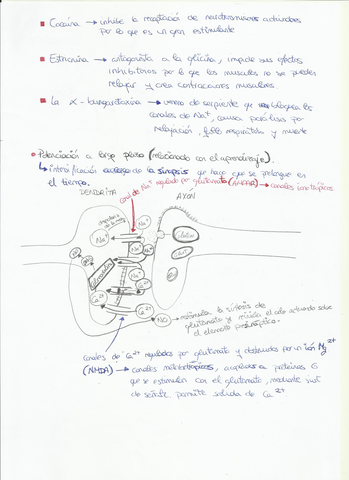 ▪ Cocaína → inhibe la recaptación de neurotransmisores activadores
por lo que es un gran estimulante
▪ Estricnina → antagonista a la glicina, impide sus efectos
inhibitorios por lo que los musculos no se pueden
relajar y crea contracciones musculares.
▪ La α-bungarotoxina → veneno de serpiente que bloquea los
canales de Na⁺, causa parálisis por
relajación, fallo respiratorio y muerte
• Potenciación a largo plazo (relacionado con el aprendizaje).
↳ intensificación de la sinapsis que hace que se prolongue en
el tiempo.
canal de Na⁺ regulado por glutamato (AMPAR) → canales ionotrópicos
DENDRITA
AXÓN
despolariza
Na⁺
Na⁺
Na⁺
Na⁺
Ca²⁺
Ca²⁺
NO
NO → estimula la síntesis de
glutamato y reinicia el ciclo actuando sobre
el elemento presináptico.
canales de Ca²⁺ regulados por glutamato y obstruidos por un ión Mg²⁺
(NMDA) → canales metabotrópicos, acoplados a proteínas G
que se estimulan con el glutamato, mediante
de señales permite salida de Ca²⁺